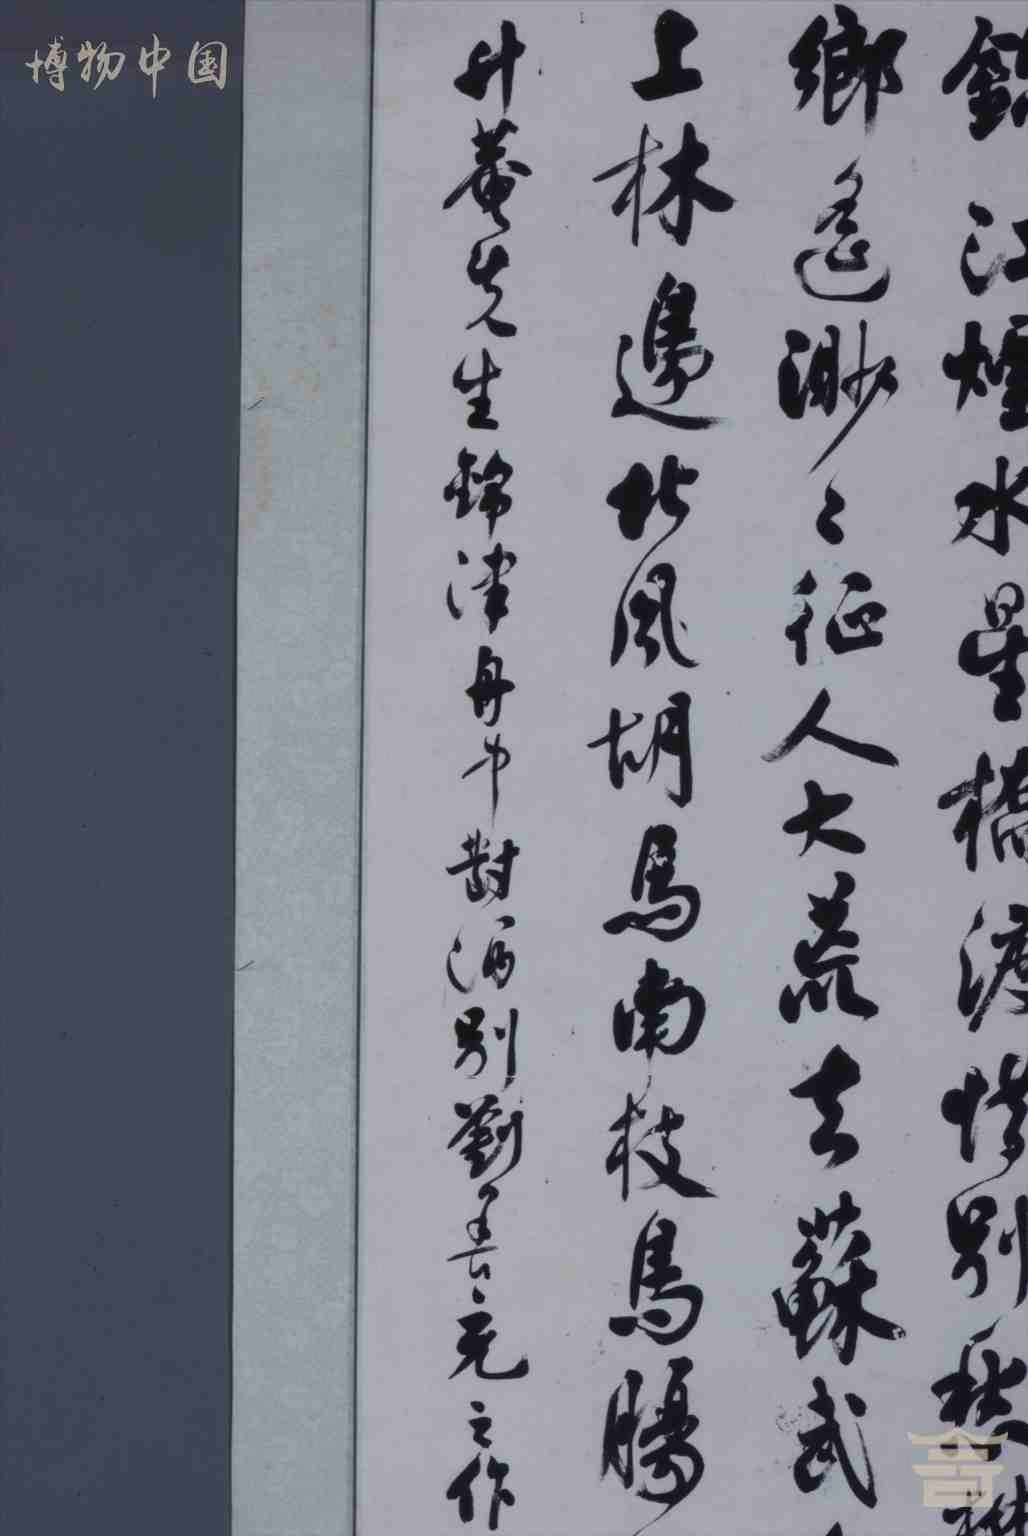 錦江煙水星橋渡惜別愁攀
鄉遙渺々征人大荒去蘇武
上林邊北風胡馬南枝鳥腸
升菴先生錦津舟中對酒別劉善充之作
博物中国